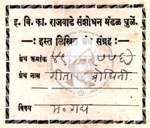 इ. वि. का. राजवाडे संशोधन मंडळ धुळे.
हस्त लिखित ग्रंथ संग्रह
ग्रंथ क्रमांक
ग्रंथ नाम गीता बोधिनी
विषय म. गद्य